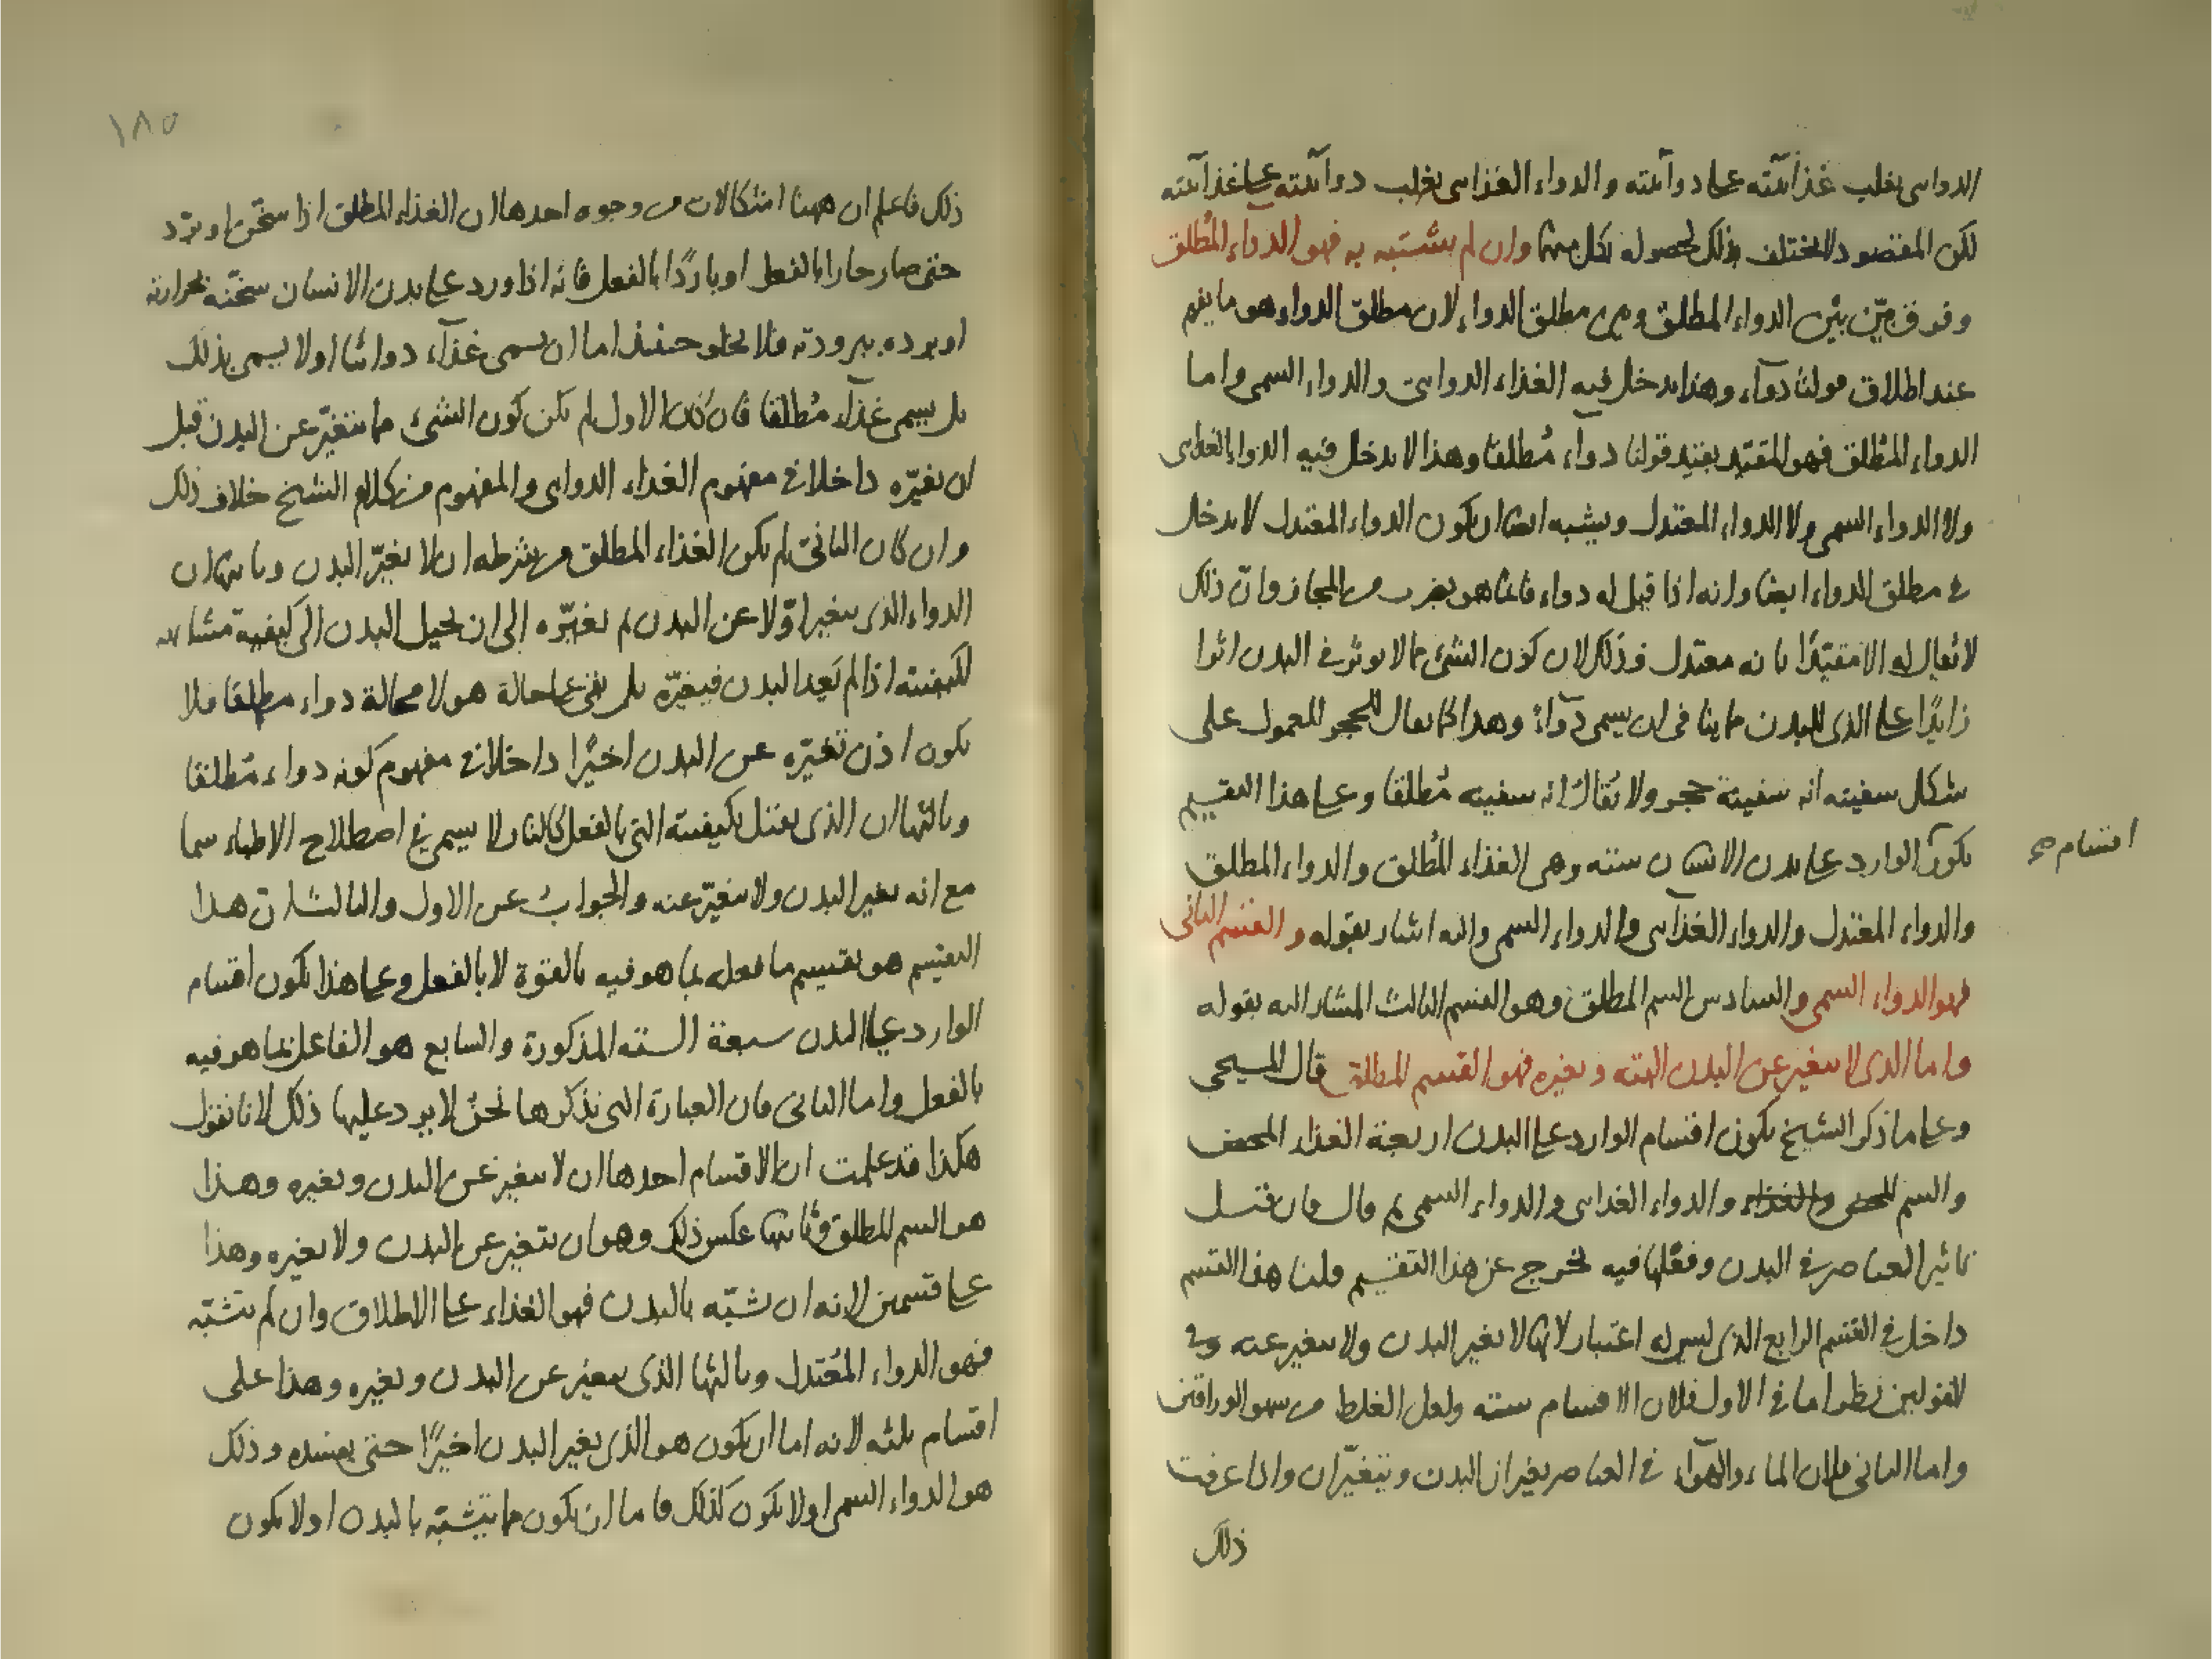 الدوايى يغلب غذائيته على دوائيته والدواء الغذايى يغلب دوائيته على غذائيته
لكن المقصود لا يختلف بذلك لحصوله لكل منهما وان لم يتشبه به فهو الدواء المُطلق
وفرق بيّن بين الدواء المطلق وبين مطلق الدواء لان مطلق الدواء هو ما يفهم
عند اطلاق قولنا دوآء وهذا يدخل فيه الغذاء الدوايى والدواء السمى واما
الدواء المُطلق فهو المقيّد بقيد قولنا دوآء مُطلقا وهذا لا يدخل فيه الدواء الغذايى
ولا الدواء السمى ولا الدواء المعتدل ويشبه ايضا ان يكون الدواء المعتدل لا يدخل
فى مطلق الدواء ايضا وانه اذا قيل له دواء فانما هو بضرب من المجاز وانّ ذلك
لا يقال له الا مقيّدًا بانه معتدل وذلك لان كون الشئ مما لا يوثر فى البدن اثرا
زايدًا على الذى للبدن مما ينافى ان يسمى دوآءً وهذا كما يقال للحجر المعمول على
شكل سفينه انه سفينة حجر ولا يُقال انه سفينه مُطلقا وعلى هذا التقسيم
يكون الوارد على بدن الانسان سته وهى الغذاء المُطلق والدواء المطلق
اقسام صح
والدواء المعتدل والدواء الغذآيى والدواء السمى واليه اشار بقوله والقسم الثانى
فهو الدواء السمى والسادس السم المطلق وهو القسم الثالث المشار اليه بقوله
واما الذى لا يتغير عن البدن البته ويغيره فهو القسم المطلق قال المسيحى
وعلى ما ذكر الشيخ يكون اقسام الوارد على البدن اربعة الغذاء المحض
والسم المحض والغذاء والدواء الغذايى والدواء السمى ثم قال فان قيل
تاثير العناصر فى البدن وفعلها فيه يخرج عن هذا التقسيم قلنا هذا القسم
داخل فى القسم الرابع الذى ليس له اعتبار لانها لا تغير البدن ولا يتغير عنه وفى
القولين نظر اما فى الاول فلان الاقسام سته ولعل الغلط من سهو الوراقين
واما الثانى فلان الماء والهوآء فى العناصر يغيران البدن ويتغيّران واذا عرفت
ذلك
١٨٥
ذلك فاعلم ان ههنا اشكالات من وجوه احدها ان الغذاء المطلق اذا سخّن او برّد
حتى صار حارا بالفعل او باردًا بالفعل فانه اذا ورد على بدن الانسان سخّنه بحرارته
او برده ببرودته فلا يخلو حينئذ اما ان يسمى غذآء دوائيا او لا يسمى بذلك
بل يسمى غذآء مُطلقا فان كان الاول لم يكن كون الشئ مما يتغيّر عن البدن قبل
ان يغيّره داخلا فى مفهوم الغذاء الدوايى والمفهوم من كلام الشيخ خلاف ذلك
وان كان الثانى لم يكن الغذاء المطلق من شرطه ان لا يغيّر البدن وثانيها ان
الدواء الذى يتغير اوّلا عن البدن ثم يغيّره الى ان يحيل البدن الى كيفية مشابهه
لكيفيته اذا لم يَعد البدن فيغيّره بل بقى على حالة هو لا محالة دواء مطلقا فلا
يكون اذن تغيّره عن البدن اخيرًا داخلا فى مفهوم كونه دواء مُطلقا
وثالثها ان الذى يقتل بكيفيته التى بالفعل كالنار لا يسمى فى اصطلاح الاطباء سما
مع انه يغير البدن ولا يتغيّر عنه والجواب عن الاول والثالث ان هذا
التقسيم هو تقسيم ما فعله بما هو فيه بالقوة لا بالفعل وعلى هذا يكون اقسام
الوارد على البدن سبعة السته المذكورة والسابع هو الفاعل بما هو فيه
بالفعل واما الثانى فان العبارة التى نذكرها نحن لا يرد عليها ذلك لانا نقول
هكذا قد علمت ان الاقسام احدها ان لا يتغير عن البدن ويغيره وهذا
هو السم المطلق وثانيها عكس ذلك وهو ان يتغير عن البدن ولا يغيره وهذا
على قسمين لانه ان شبّه بالبدن فهو الغذاء على الاطلاق وان لم يتشبّه
فهو الدواء المُعتدل وثالثها الذى يتغير عن البدن ويغيره وهذا على
اقسام ثلثه لانه اما ان يكون هو الذى يغير البدن اخيرًا حتى يفسده وذلك
هو الدواء السمى او لا يكون كذلك فاما ان يكون مما يتشبّه بالبدن او لا يكون